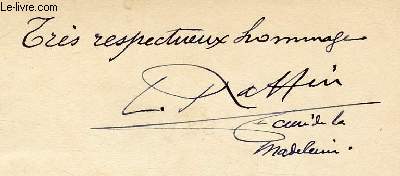 Le-livre.com
Très respectueux hommage
L. Raffin
curé de la
Madeleine.